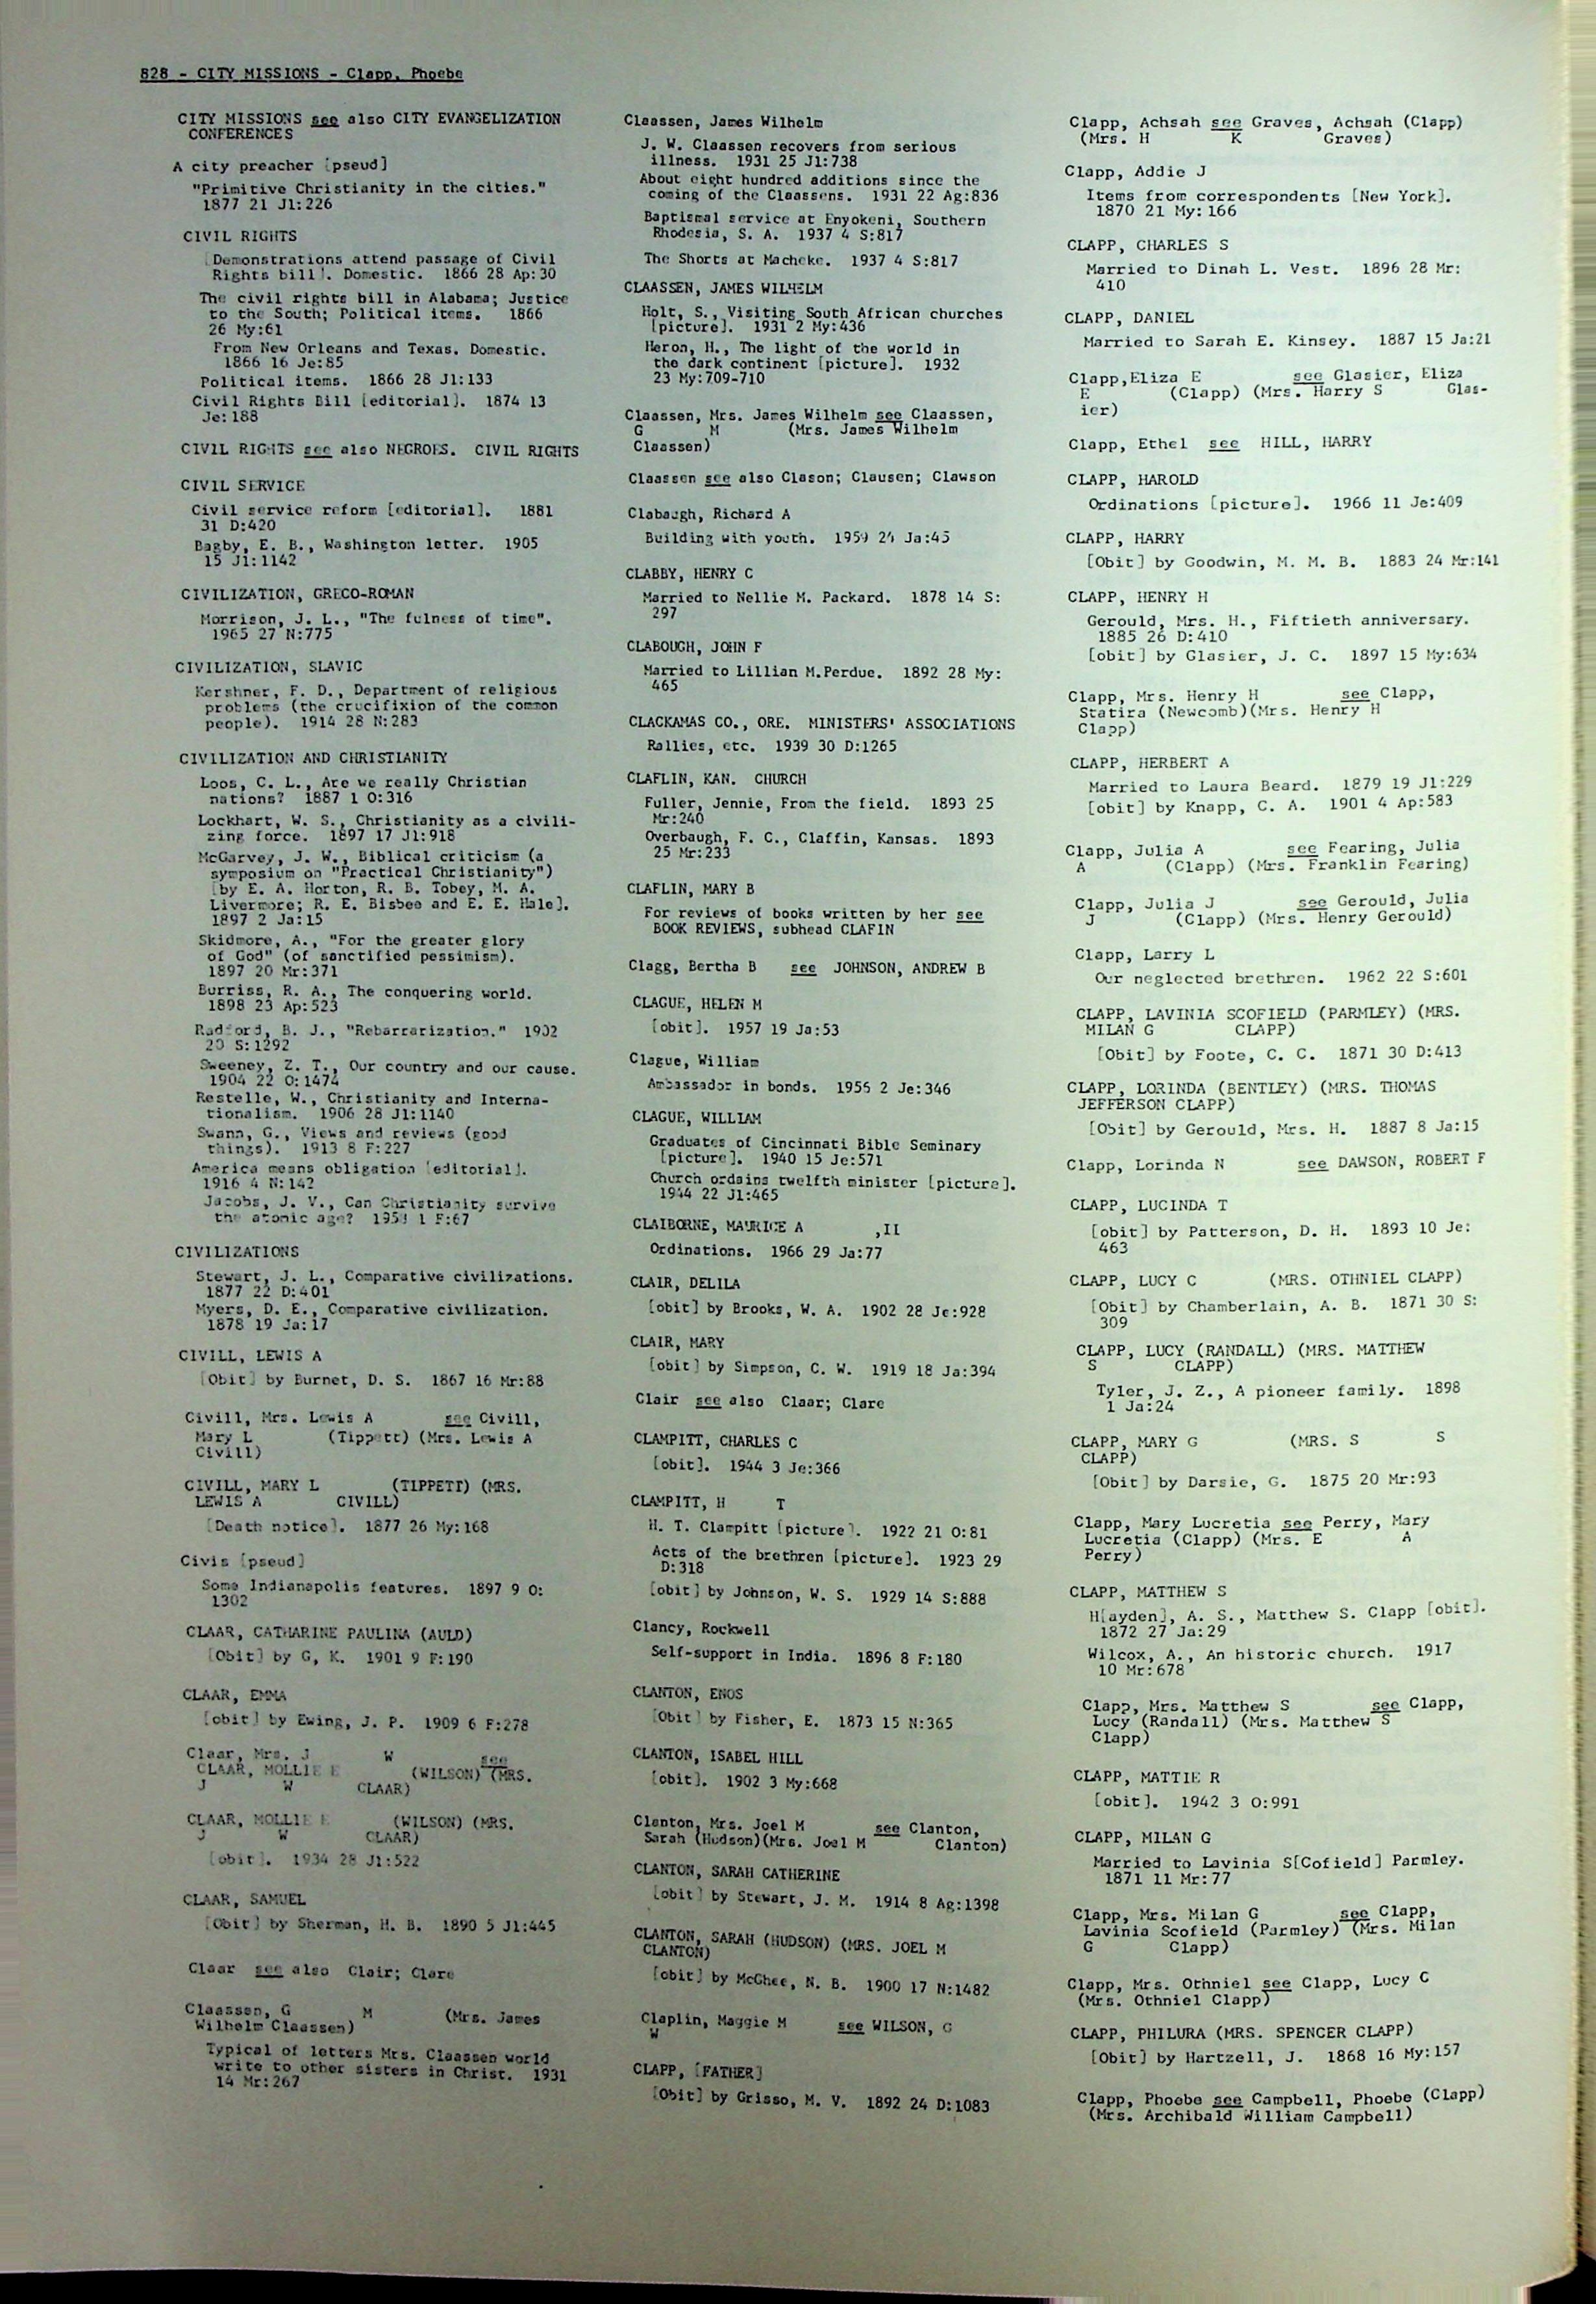 828 - CITY MISSIONS - Clapp, Phoebe
CITY MISSIONS see also CITY EVANGELIZATION
CONFERENCES
A city preacher [pseud]
"Primitive Christianity in the cities."
1877 21 Jl:226
CIVIL RIGHTS
[Demonstrations attend passage of Civil
Rights bill]. Domestic. 1866 28 Ap:30
The civil rights bill in Alabama; Justice
to the South; Political items. 1866
26 My:61
From New Orleans and Texas. Domestic.
1866 16 Je:85
Political items. 1866 28 Jl:133
Civil Rights Bill [editorial]. 1874 13
Je:188
CIVIL RIGHTS see also NEGROES. CIVIL RIGHTS
CIVIL SERVICE
Civil service reform [editorial]. 1881
31 D:420
Bagby, E. B., Washington letter. 1905
15 Jl:1142
CIVILIZATION, GRECO-ROMAN
Morrison, J. L., "The fulness of time".
1965 27 N:775
CIVILIZATION, SLAVIC
Kershner, F. D., Department of religious
problems (the crucifixion of the common
people). 1914 28 N:283
CIVILIZATION AND CHRISTIANITY
Loos, C. L., Are we really Christian
nations? 1887 1 O:316
Lockhart, W. S., Christianity as a civili-
zing force. 1897 17 Jl:918
McGarvey, J. W., Biblical criticism (a
symposium on "Practical Christianity")
[by E. A. Horton, R. B. Tobey, M. A.
Livermore; R. E. Bisbee and E. E. Hale].
1897 2 Ja:15
Skidmore, A., "For the greater glory
of God" (of sanctified pessimism).
1897 20 Mr:371
Burriss, R. A., The conquering world.
1898 23 Ap:523
Radford, B. J., "Rebarrarization." 1902
20 S:1292
Sweeney, Z. T., Our country and our cause.
1904 22 O:1474
Restelle, W., Christianity and Interna-
tionalism. 1906 28 Jl:1140
Swann, G., Views and reviews (good
things). 1913 8 F:227
America means obligation [editorial].
1916 4 N:142
Jacobs, J. V., Can Christianity survive
the atomic age? 1 F:67
CIVILIZATIONS
Stewart, J. L., Comparative civilizations.
1877 22 D:401
Myers, D. E., Comparative civilization.
1878 19 Ja:17
CIVILL, LEWIS A
[Obit] by Burnet, D. S. 1867 16 Mr:88
Civill, Mrs. Lewis A see Civill,
Mary L (Tippett) (Mrs. Lewis A
Civill)
CIVILL, MARY L (TIPPETT) (MRS.
LEWIS A CIVILL)
[Death notice]. 1877 26 My:168
Civis [pseud]
Some Indianapolis features. 1897 9 O:
1302
CLAAR, CATHARINE PAULINA (AULD)
[Obit] by G, K. 1901 9 F:190
CLAAR, EMMA
[obit] by Ewing, J. P. 1909 6 F:278
Claar, Mrs. J W see
CLAAR, MOLLIE E (WILSON) (MRS.
J W CLAAR)
CLAAR, MOLLIE E (WILSON) (MRS.
J W CLAAR)
[obit]. 1934 28 Jl:522
CLAAR, SAMUEL
[Obit] by Sherman, H. B. 1890 5 Jl:445
Claar see also Clair; Clare
Claassen, G M (Mrs. James
Wilhelm Claassen)
Typical of letters Mrs. Claassen world
write to other sisters in Christ. 1931
14 Mr:267
Claassen, James Wilhelm
J. W. Claassen recovers from serious
illness. 1931 25 Jl:738
About eight hundred additions since the
coming of the Claassens. 1931 22 Ag:836
Baptismal service at Enyokeni, Southern
Rhodesia, S. A. 1937 4 S:817
The Shorts at Macheke. 1937 4 S:817
CLAASSEN, JAMES WILHELM
Holt, S., Visiting South African churches
[picture]. 1931 2 My:436
Heron, H., The light of the world in
the dark continent [picture]. 1932
23 My:709-710
Claassen, Mrs. James Wilhelm see Claassen,
G M (Mrs. James Wilhelm
Claassen)
Claassen see also Clason; Clausen; Clawson
Clabaugh, Richard A
Building with youth. 1959 24 Ja:45
CLABBY, HENRY C
Married to Nellie M. Packard. 1878 14 S:
297
CLABOUGH, JOHN F
Married to Lillian M.Perdue. 1892 28 My:
465
CLACKAMAS CO., ORE. MINISTERS' ASSOCIATIONS
Rallies, etc. 1939 30 D:1265
CLAFLIN, KAN. CHURCH
Fuller, Jennie, From the field. 1893 25
Mr:240
Overbaugh, F. C., Claffin, Kansas. 1893
25 Mr:233
CLAFLIN, MARY B
For reviews of books written by her see
BOOK REVIEWS, subhead CLAFIN
Clagg, Bertha B see JOHNSON, ANDREW B
CLAGUE, HELEN M
[obit]. 1957 19 Ja:53
Clague, William
Ambassador in bonds. 1956 2 Je:346
CLAGUE, WILLIAM
Graduates of Cincinnati Bible Seminary
[picture]. 1940 15 Je:571
Church ordains twelfth minister [picture].
1944 22 Jl:465
CLAIBORNE, MAURICE A ,II
Ordinations. 1966 29 Ja:77
CLAIR, DELILA
[obit] by Brooks, W. A. 1902 28 Je:928
CLAIR, MARY
[obit] by Simpson, C. W. 1919 18 Ja:394
Clair see also Claar; Clare
CLAMPITT, CHARLES C
[obit]. 1944 3 Je:366
CLAMPITT, H T
H. T. Clampitt [picture]. 1922 21 O:81
Acts of the brethren [picture]. 1923 29
D:318
[obit] by Johnson, W. S. 1929 14 S:888
Clancy, Rockwell
Self-support in India. 1896 8 F:180
CLANTON, ENOS
[Obit] by Fisher, E. 1873 15 N:365
CLANTON, ISABEL HILL
[obit]. 1902 3 My:668
Clanton, Mrs. Joel M see Clanton,
Sarah (Hudson)(Mrs. Joel M Clanton)
CLANTON, SARAH CATHERINE
[obit] by Stewart, J. M. 1914 8 Ag:1398
CLANTON, SARAH (HUDSON) (MRS. JOEL M
CLANTON)
[obit] by McGhee, N. B. 1900 17 N:1482
Claplin, Maggie M see WILSON, G
W
CLAPP, [FATHER]
[Obit] by Grisso, M. V. 1892 24 D:1083
Clapp, Achsah see Graves, Achsah (Clapp)
(Mrs. H K Graves)
Clapp, Addie J
Items from correspondents [New York].
1870 21 My:166
CLAPP, CHARLES S
Married to Dinah L. Vest. 1896 28 Mr:
410
CLAPP, DANIEL
Married to Sarah E. Kinsey. 1887 15 Ja:21
Clapp,Eliza E see Glasier, Eliza
E (Clapp) (Mrs. Harry S Glas-
ier)
Clapp, Ethel see HILL, HARRY
CLAPP, HAROLD
Ordinations [picture]. 1966 11 Je:409
CLAPP, HARRY
[Obit] by Goodwin, M. M. B. 1883 24 Mr:141
CLAPP, HENRY H
Gerould, Mrs. H., Fiftieth anniversary.
1885 26 D:410
[obit] by Glasier, J. C. 1897 15 My:634
Clapp, Mrs. Henry H see Clapp,
Statira (Newcomb)(Mrs. Henry H
Clapp)
CLAPP, HERBERT A
Married to Laura Beard. 1879 19 Jl:229
[obit] by Knapp, C. A. 1901 4 Ap:583
Clapp, Julia A see Fearing, Julia
A (Clapp) (Mrs. Franklin Fearing)
Clapp, Julia J see Gerould, Julia
J (Clapp) (Mrs. Henry Gerould)
Clapp, Larry L
Our neglected brethren. 1962 22 S:601
CLAPP, LAVINIA SCOFIELD (PARMLEY) (MRS.
MILAN G CLAPP)
[Obit] by Foote, C. C. 1871 30 D:413
CLAPP, LORINDA (BENTLEY) (MRS. THOMAS
JEFFERSON CLAPP)
[Obit] by Gerould, Mrs. H. 1887 8 Ja:15
Clapp, Lorinda N see DAWSON, ROBERT F
CLAPP, LUCINDA T
[obit] by Patterson, D. H. 1893 10 Je:
463
CLAPP, LUCY C (MRS. OTHNIEL CLAPP)
[Obit] by Chamberlain, A. B. 1871 30 S:
309
CLAPP, LUCY (RANDALL) (MRS. MATTHEW
S CLAPP)
Tyler, J. Z., A pioneer family. 1898
1 Ja:24
CLAPP, MARY G (MRS. S S
CLAPP)
[Obit] by Darsie, G. 1875 20 Mr:93
Clapp, Mary Lucretia see Perry, Mary
Lucretia (Clapp) (Mrs. E A
Perry)
CLAPP, MATTHEW S
H[ayden], A. S., Matthew S. Clapp [obit].
1872 27 Ja:29
Wilcox, A., An historic church. 1917
10 Mr:678
Clapp, Mrs. Matthew S see Clapp,
Lucy (Randall) (Mrs. Matthew S
Clapp)
CLAPP, MATTIE R
[obit]. 1942 3 O:991
CLAPP, MILAN G
Married to Lavinia S[Cofield] Parmley.
1871 11 Mr:77
Clapp, Mrs. Milan G see Clapp,
Lavinia Scofield (Parmley) (Mrs. Milan
G Clapp)
Clapp, Mrs. Othniel see Clapp, Lucy C
(Mrs. Othniel Clapp)
CLAPP, PHILURA (MRS. SPENCER CLAPP)
[Obit] by Hartzell, J. 1868 16 My:157
Clapp, Phoebe see Campbell, Phoebe (Clapp)
(Mrs. Archibald William Campbell)